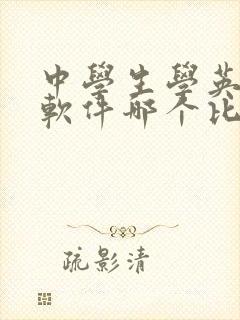 中學生學英
軟件哪个比
疏影清